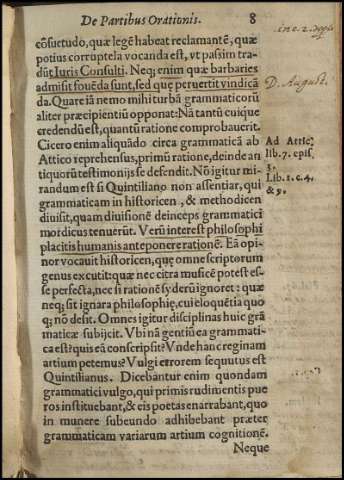 De Partibus Orationis. 8
cōsuetudo, quæ legē habeat reclamantē, quæ
potius corruptela vocanda est, vt passim tra-
dūt Iuris Consulti. Neq; enim quæ barbaries
admisit fouēda sunt, sed quę peruertit vindicā
da. Quare iā nemo mihi turbā grammaticorū
aliter præcipientiū opponat: Nā tantū cuiq́ue
credendū est, quantū ratione comprobauerit.
Cicero enim aliquādo circa grammaticā ab
Attico reprehensus, primū ratione, deinde an
tiquorū testimonijs se defendit. Nō igitur mi-
randum est si Quintiliano non assentiar, qui
grammaticam in historicen, & methodicen
diuisit, quam diuisionē deinceps grammatici
mordicus tenuerūt. Verū interest philosophi
placitis humanis anteponere rationē. Eā opi-
nor vocauit historicen, quę omne scriptorum
genus excutit: quæ nec citra musicē potest es-
se perfecta, nec si rationē syderū ignoret: quæ
neq; sit ignara philosophię, cui eloquētia quo
q; nō desit. Omnes igitur disciplinas huic grā
maticæ subijcit. Vbi nā gentiū ea grammati-
ca est? quis eā conscripsit? Vnde hanc reginam
artium petemus? Vulgi errorem sequutus est
Quintilianus. Dicebantur enim quondam
grammatici vulgo, qui primis rudimentis pue
ros instituebant, & eis poetas enarrabant, quo
in munere subeundo adhibebant præter
grammaticam variarum artium cognitionē.
Neque
D. August.
Ad Attic.
lib. 7. epis.
3.
Lib. 1. c. 4.
& 9.